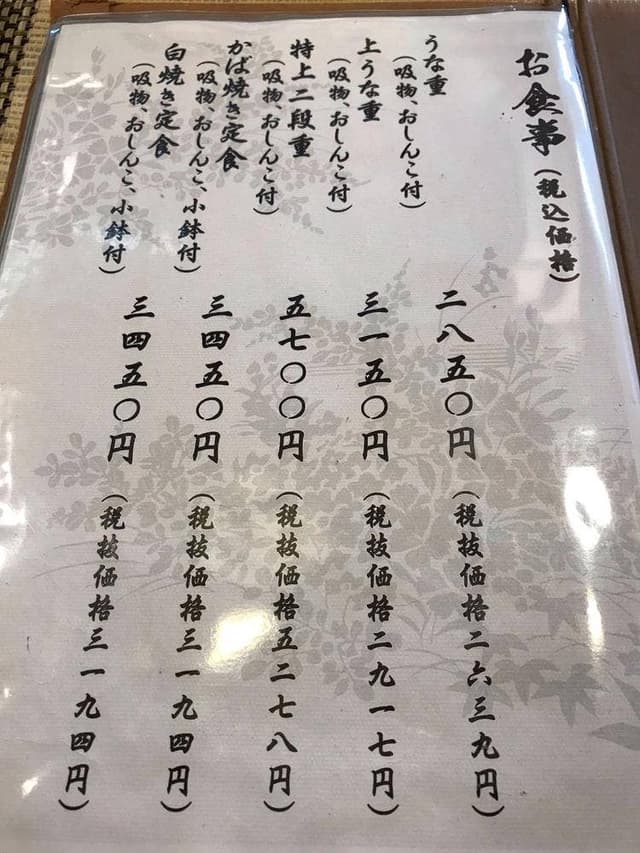 お食事（税込価格）
うな重
（吸物、おしんこ付）
二八五〇円（税抜価格二六三九円）
上うな重
（吸物、おしんこ付）
三一五〇円（税抜価格二九一七円）
特上二段重
（吸物、おしんこ付）
五七〇〇円（税抜価格五二七八円）
かば焼き定食
（吸物、おしんこ、小鉢付）
三四五〇円（税抜価格三一九四円）
白焼き定食
（吸物、おしんこ、小鉢付）
三四五〇円（税抜価格三一九四円）